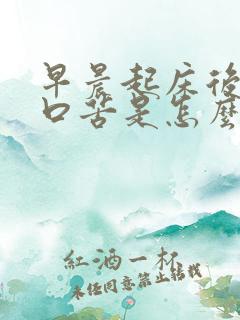 早晨起床後
口苦是怎麼
紅酒一杯
未经同意禁止转载